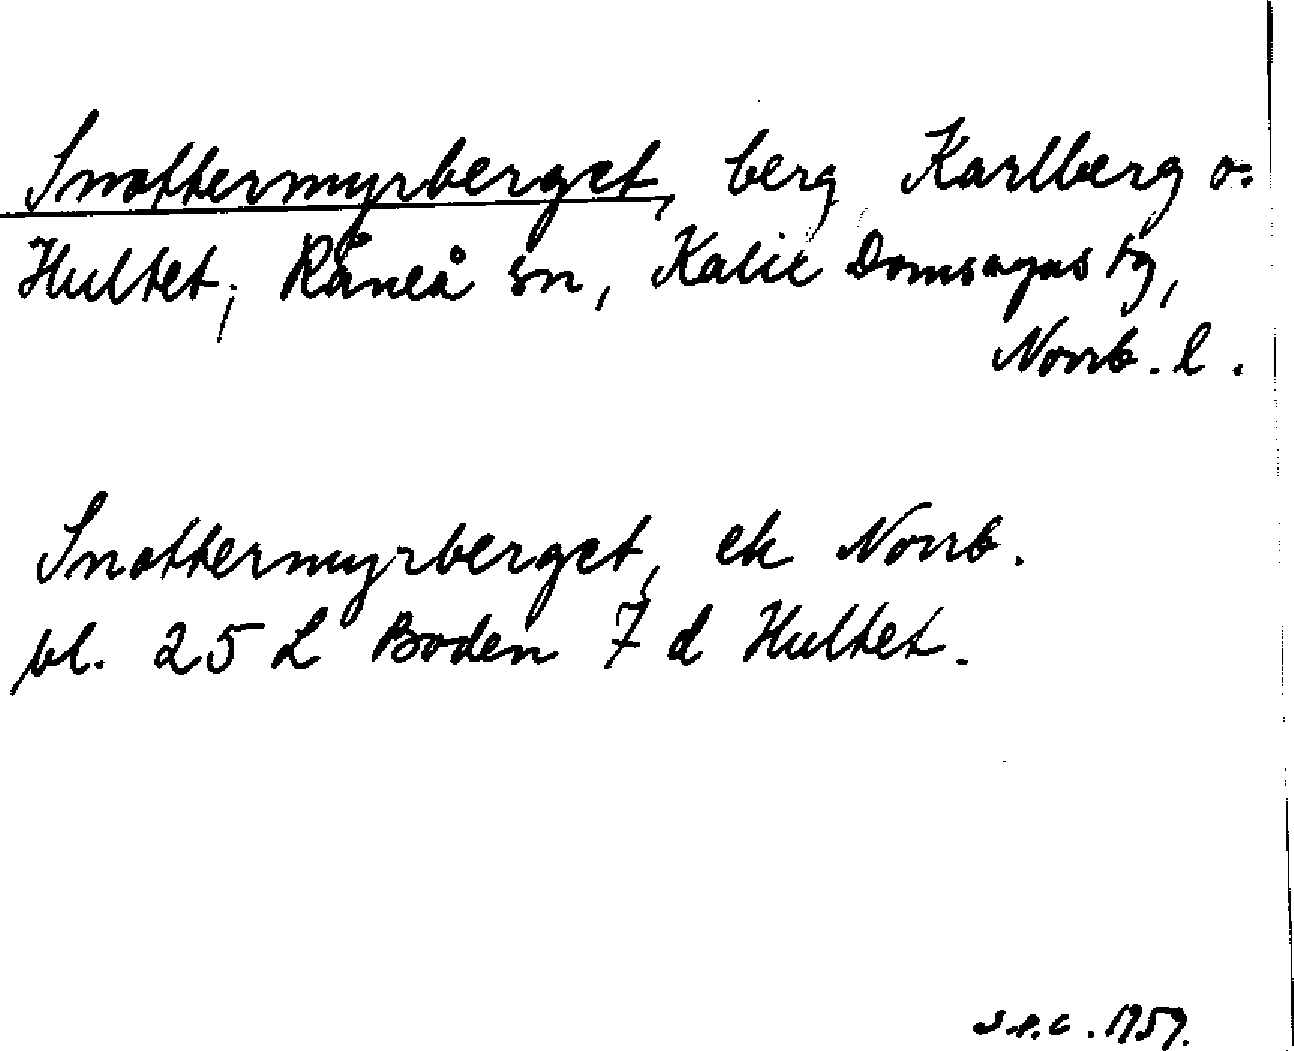 Snottermyrberget, berg Karlberg o.
Hultet, Råneå sn, Kalix Domsagas tg,
Norrb. l.
Snottermyrberget, ek Norrb.
bl. 25 L Boden 7 d Hultet.